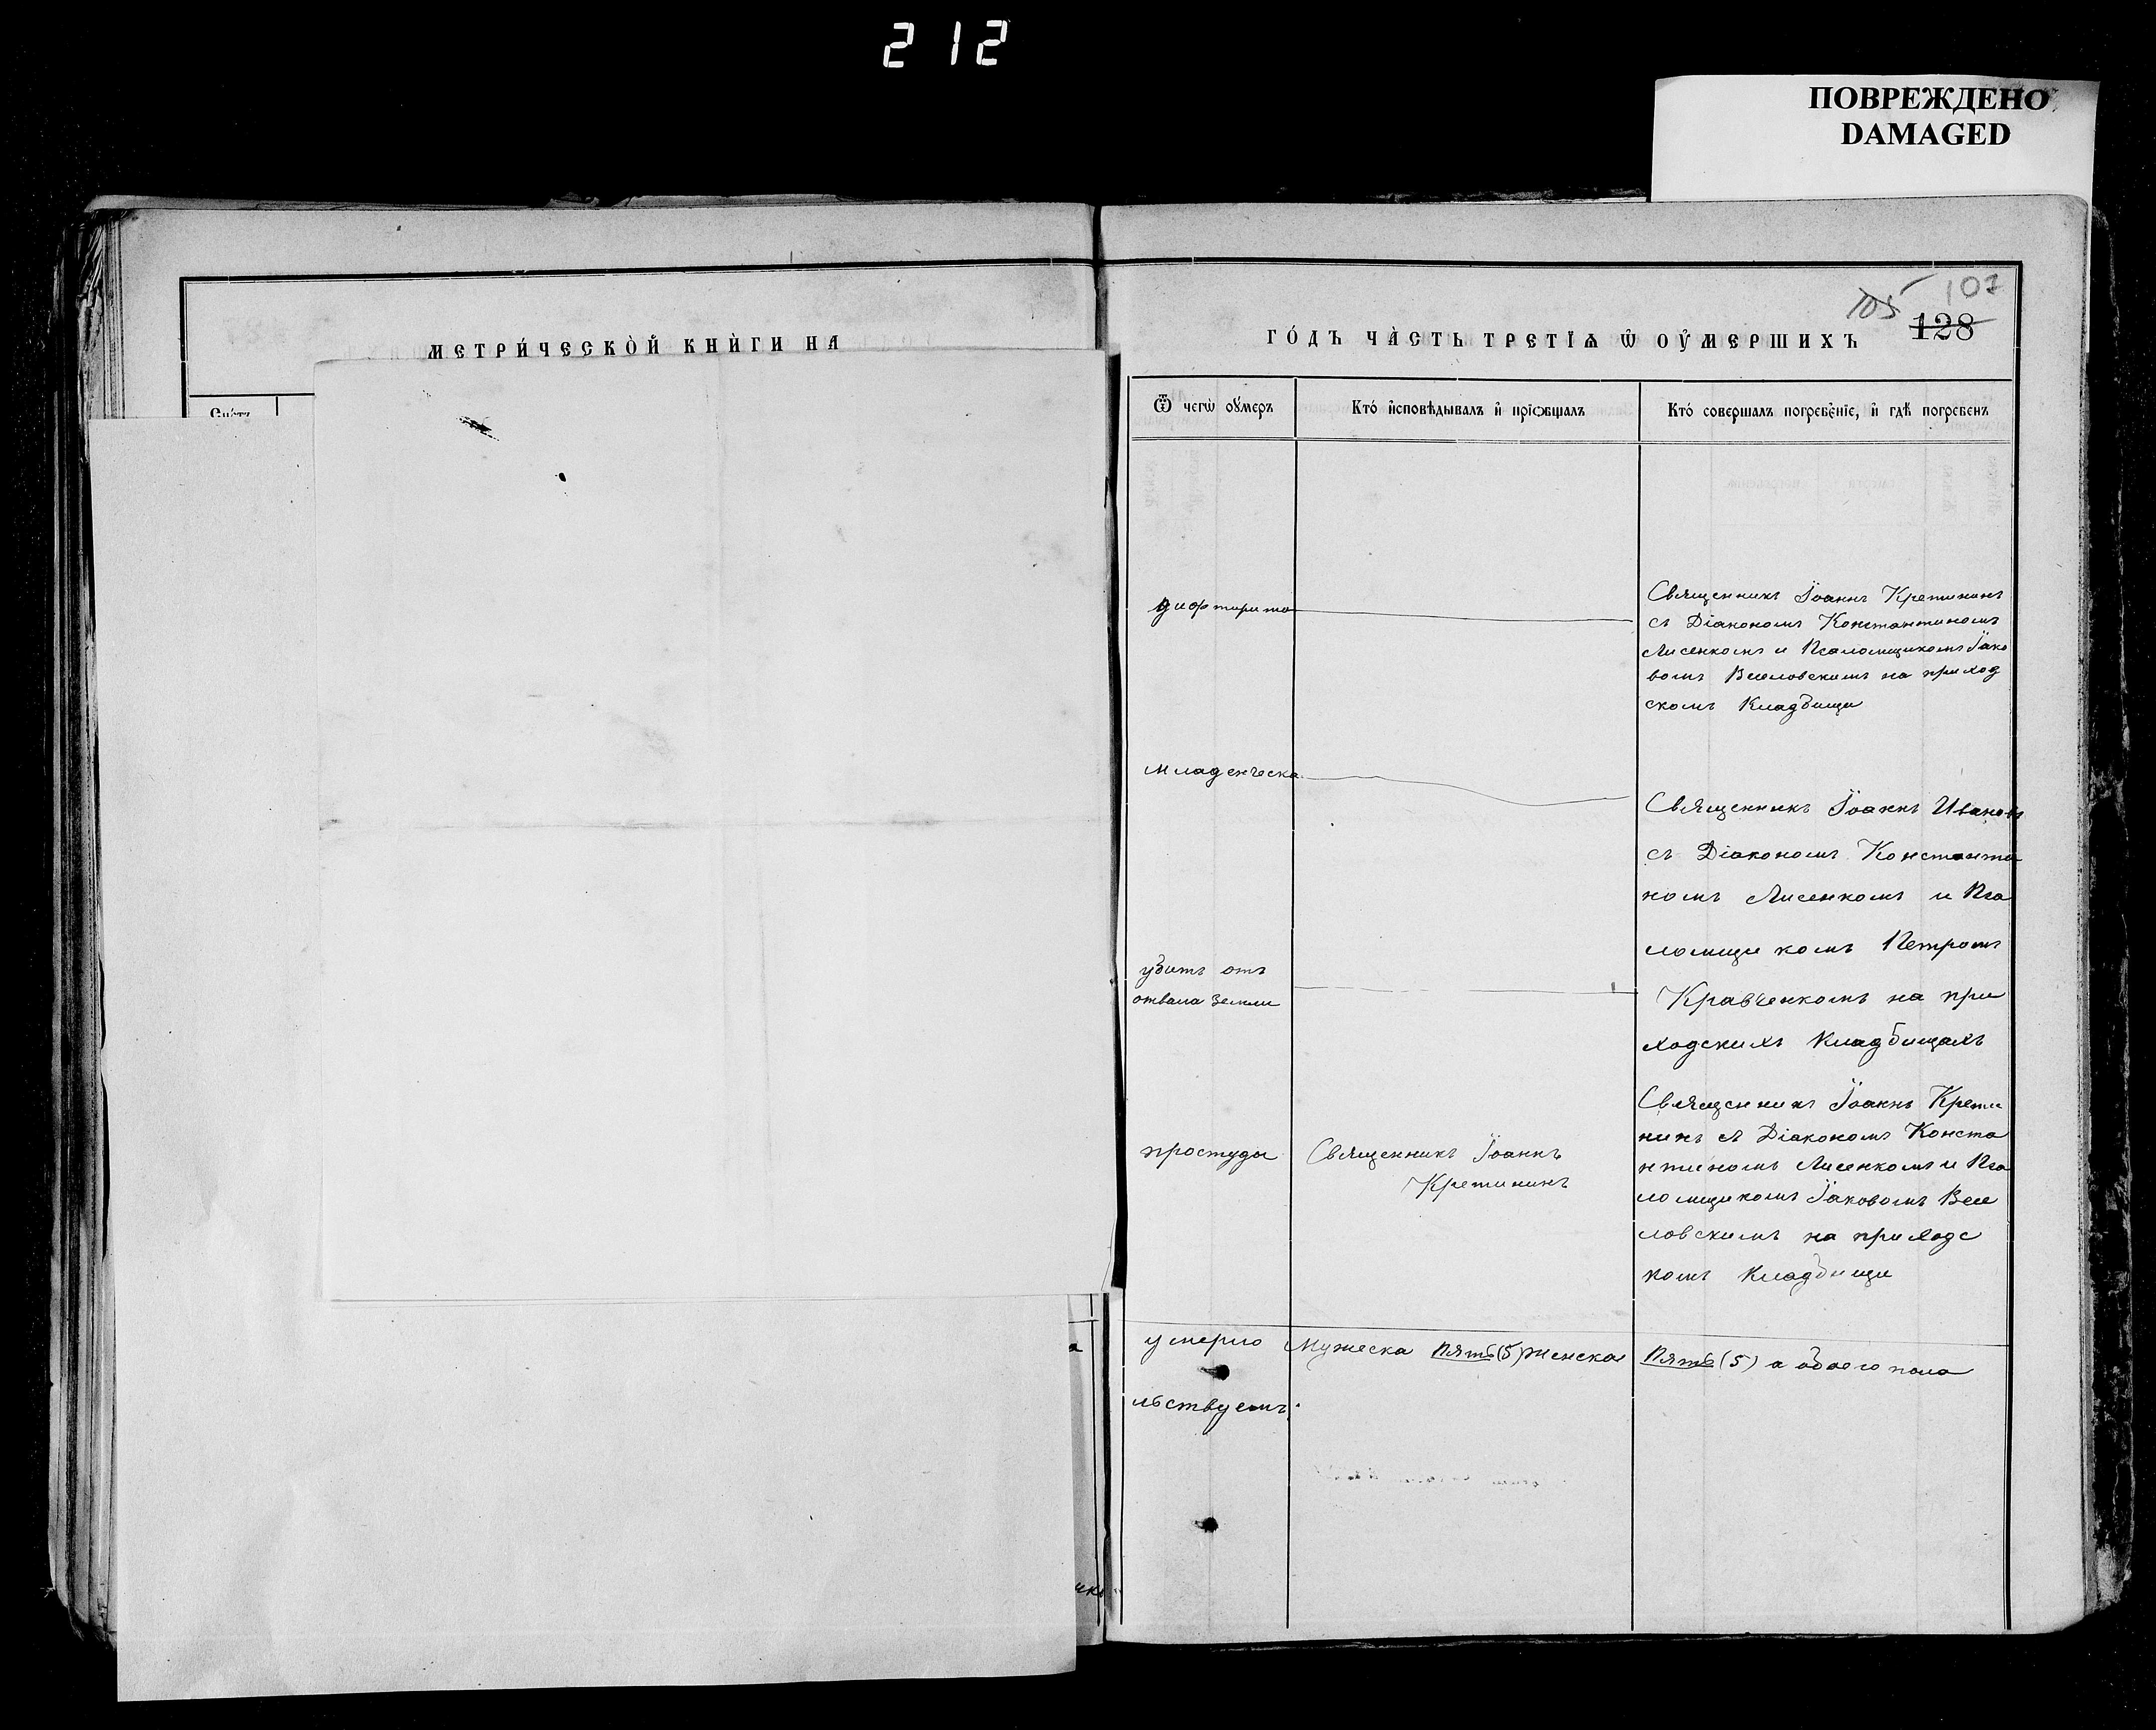 212
ПОВРЕЖДЕНО
DAMAGED
МЕТРИ́ЧЕСКОЙ КНИ́ГИ НА
105 107
128
ГО́ДЪ ЧА́СТЬ ТРЕТІѦ Ѡ҆ ОУ҆МЕРШИХЪ
Счетъ
Ѿ чегѡ̀ оу҆́меръ
Кто́ и҆сповѣ́дывалъ и҆ прїѻбща́лъ
Кто́ соверша́лъ погребе́нїе, и҆ гдѣ̀ погребе́нъ
дифтирита
Священникъ Іоаннъ Кретининъ
съ Діакономъ Константиномъ
Лисенкомъ и Псаломщикомъ Іако
вомъ Веселовскимъ на приход
скомъ Кладбищи
младенческа
Священникъ Іоаннъ Ивановъ
съ Діакономъ Константи
номъ Лисенкомъ и Пса
ломщикомъ Петромъ
Кравченкомъ на при
ходскихъ Кладбищахъ
убитъ отъ
отвала земли
простуды
Священникъ Іоаннъ
Кретининъ
Священникъ Іоаннъ Крети
нинъ съ Діакономъ Конста
нтиномъ Лисенкомъ и Пса
ломщикомъ Іаковомъ Весе
ловскимъ на приходс
комъ Кладбищи
умерло Мужеска Пять (5) Женска Пять (5) а обоего пола
льствуемъ: